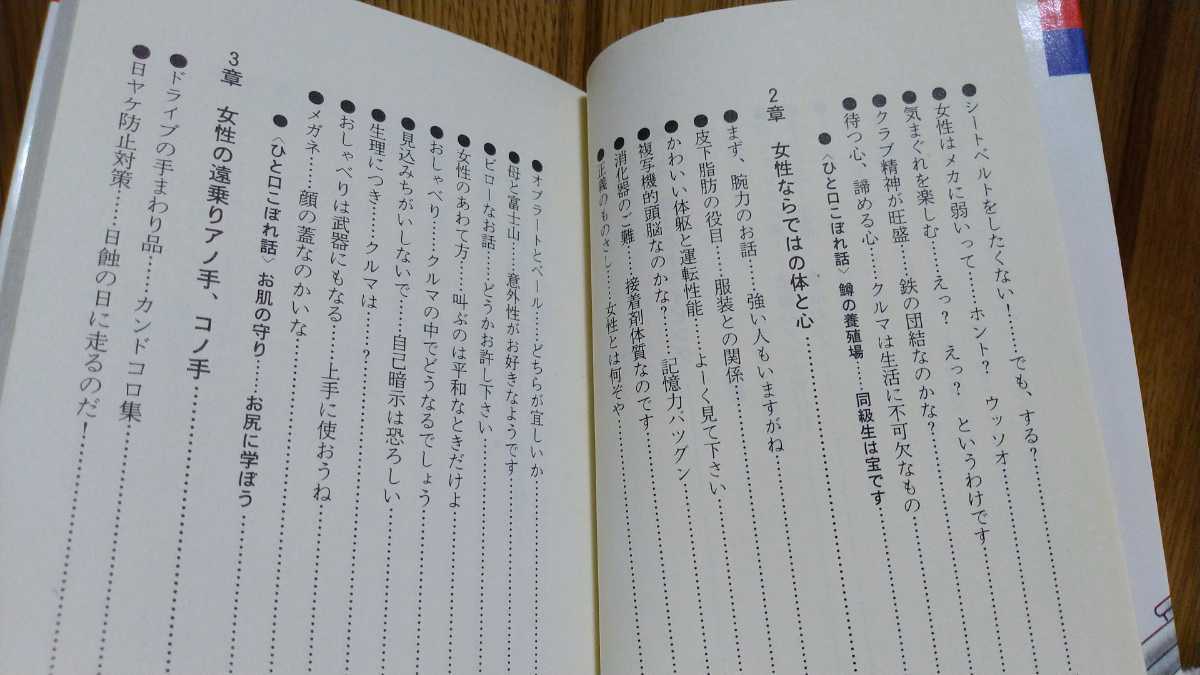 ●シートベルトをしたくない!……でも、する?
●女性はメカに弱いって……ホント? ウッソオ
●気まぐれを楽しむ……えっ? えっ? というわけです
●クラブ精神が旺盛……鉄の団結なのかな?
●待つ心、諦める心……クルマは生活に不可欠なもの
●〈ひと口こぼれ話〉鱒の養殖場……同級生は宝です
2章 女性ならではの体と心
●まず、腕力のお話……強い人もいますがね
●皮下脂肪の役目……服装との関係
●かわいい体軀と運転性能……よーく見て下さい
●複写機的頭脳なのかな?……記憶力バツグン
●消化器のご難……接着剤体質なのです
●正義のものさし……女性とは何ぞや
●オブラートとベール……どちらが宜しいか
●母と富士山……意外性がお好きなようです
●ビローなお話……どうかお許し下さい
●女性のあわて方……叫ぶのは平和なときだけよ
●おしゃべり……クルマの中でどうなるでしょう
●見込みちがいしないで……自己暗示は恐ろしい
●生理につき……クルマは……?
●おしゃべりは武器にもなる……上手に使おうね
●メガネ……顔の蓋なのかいな
●〈ひと口こぼれ話〉お肌の守り……お尻に学ぼう
3章 女性の遠乗りアノ手、コノ手
●ドライブの手まわり品……カンドコロ集
●日ヤケ防止対策……日蝕の日に走るのだ!